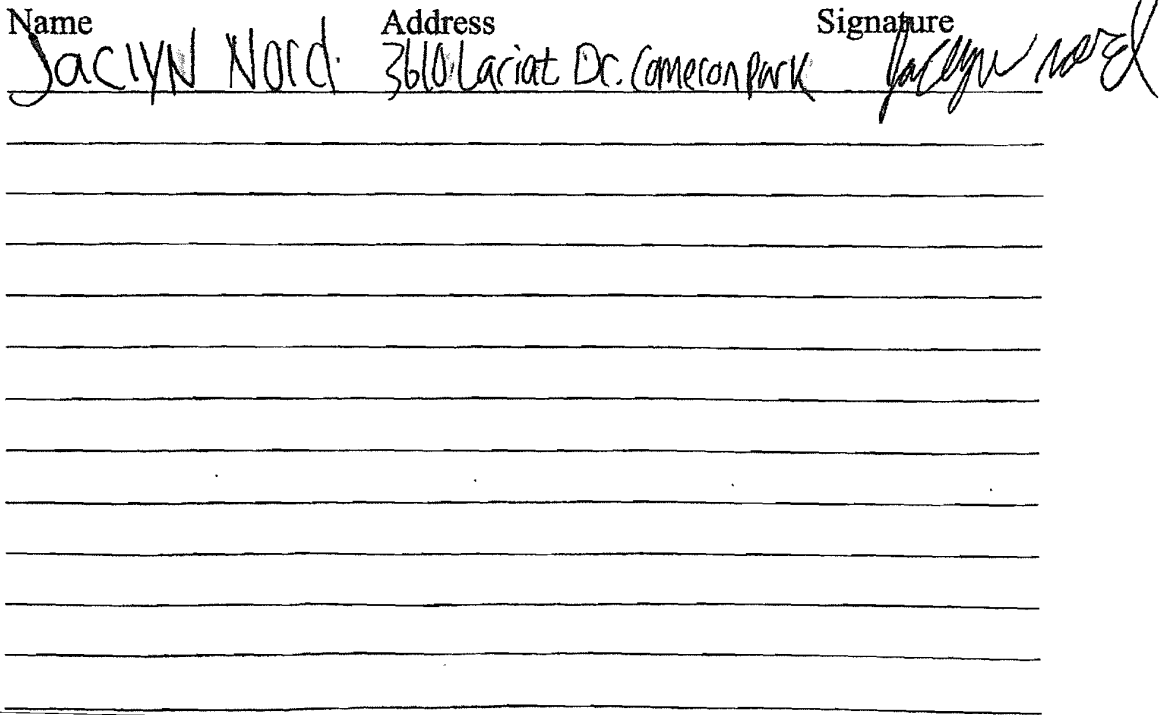 Name Address Signature
Jaclyn Nord. 3610 Lariat Dr. Cameron Park Jaclyn Nord